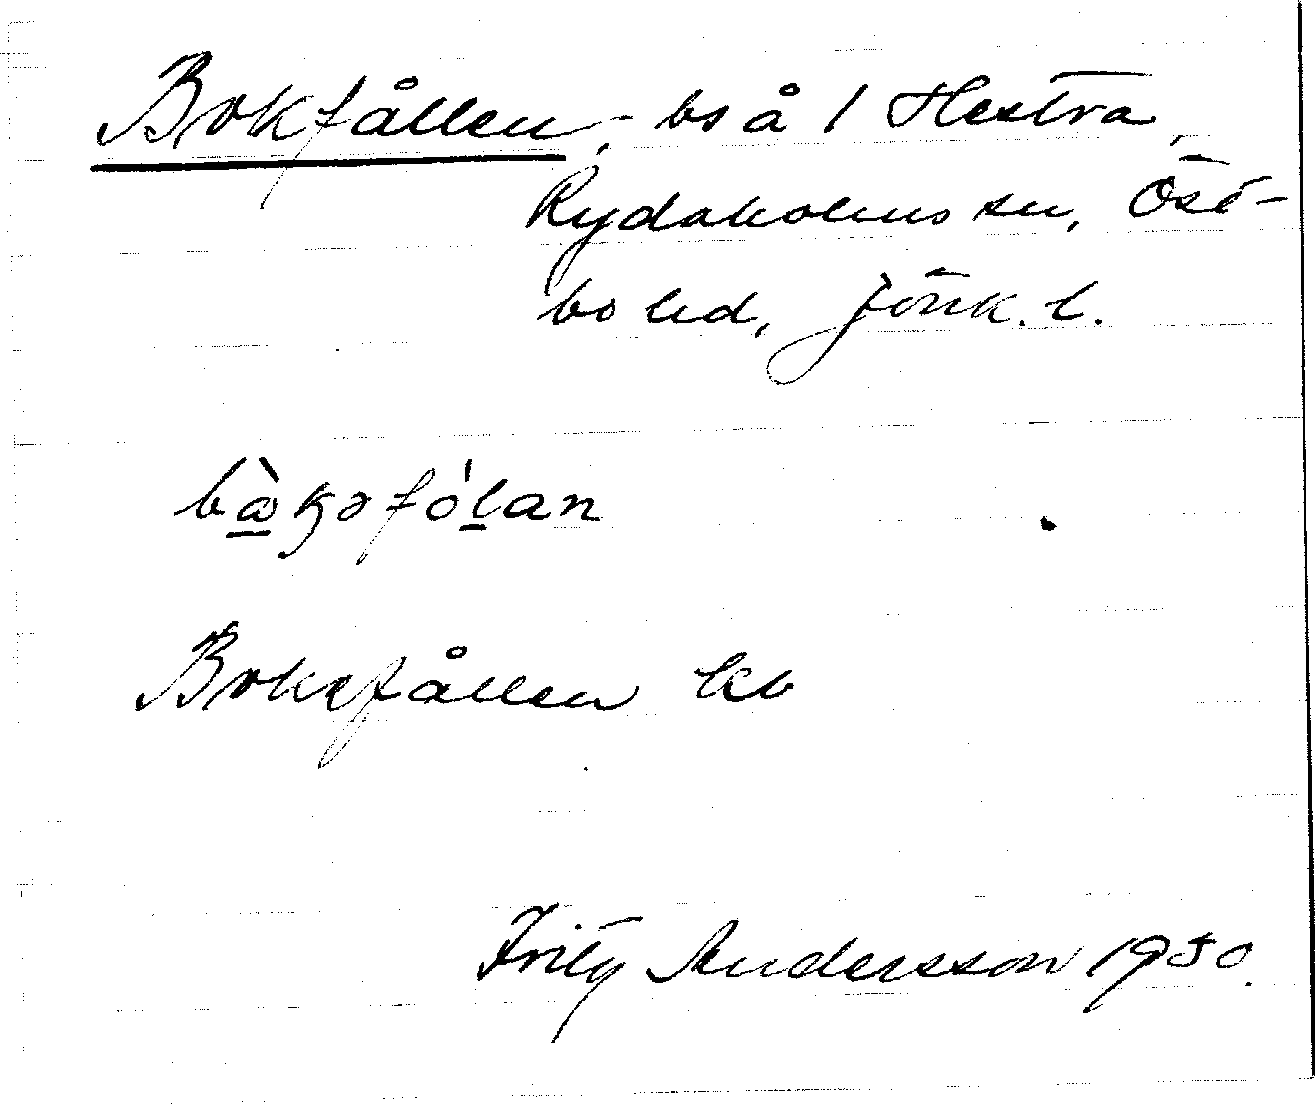 Bokfållen, bs å 1 Hestra,
Rydaholms sn, Öst-
bo hd, Jönk. l.
Bokefållen kb
Fritz Andersson 1930.